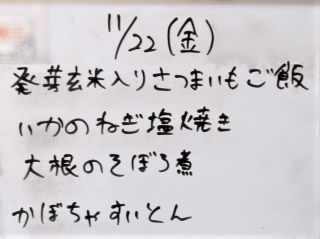 11/22(金)
発芽玄米入りさつまいもご飯
いかのねぎ塩焼き
大根のそぼろ煮
かぼちゃすいとん